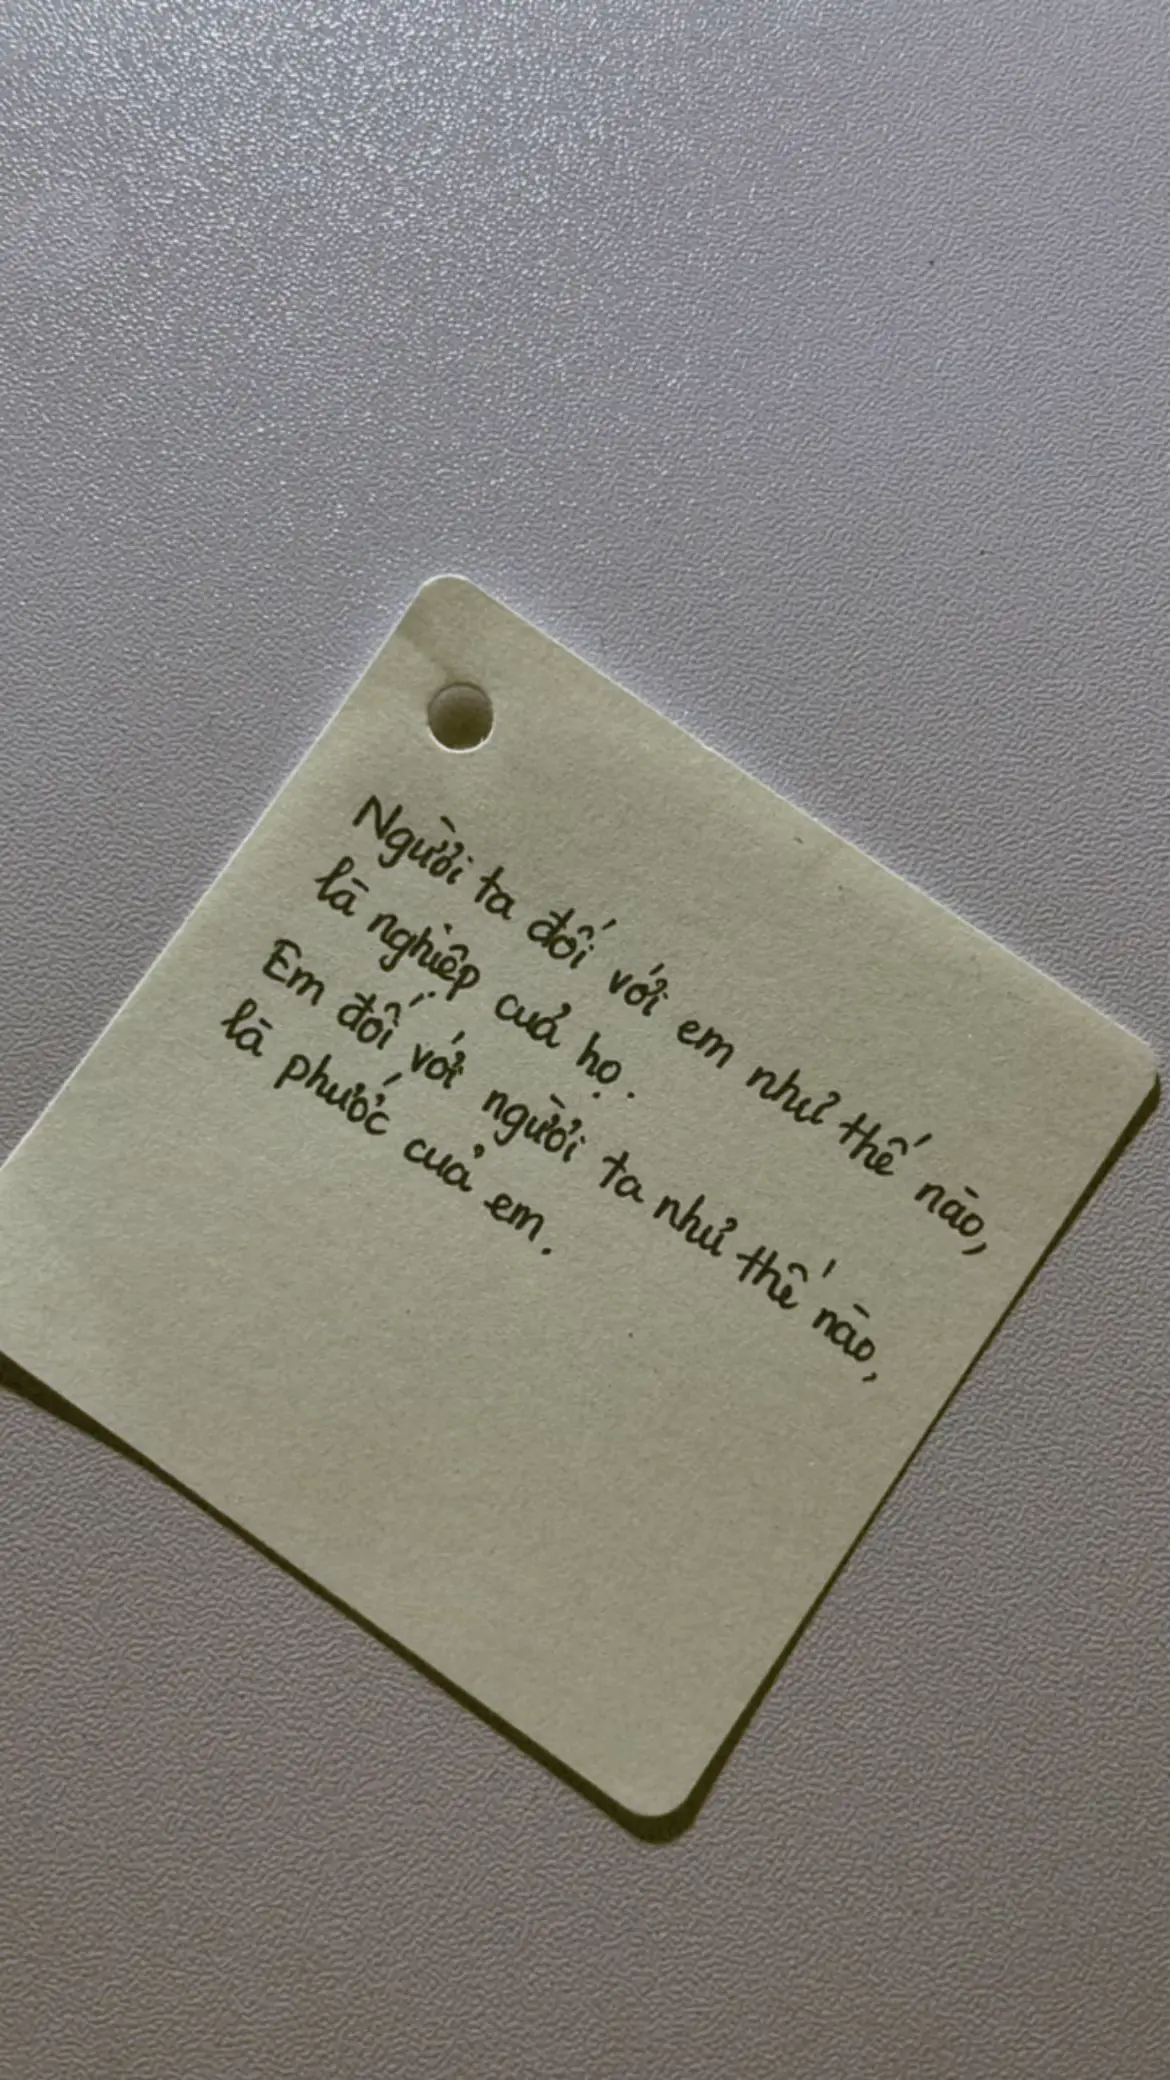 Người ta đối với em như thế nào,
là nghiệp của họ.
Em đối với người ta như thế nào,
là phước của em.